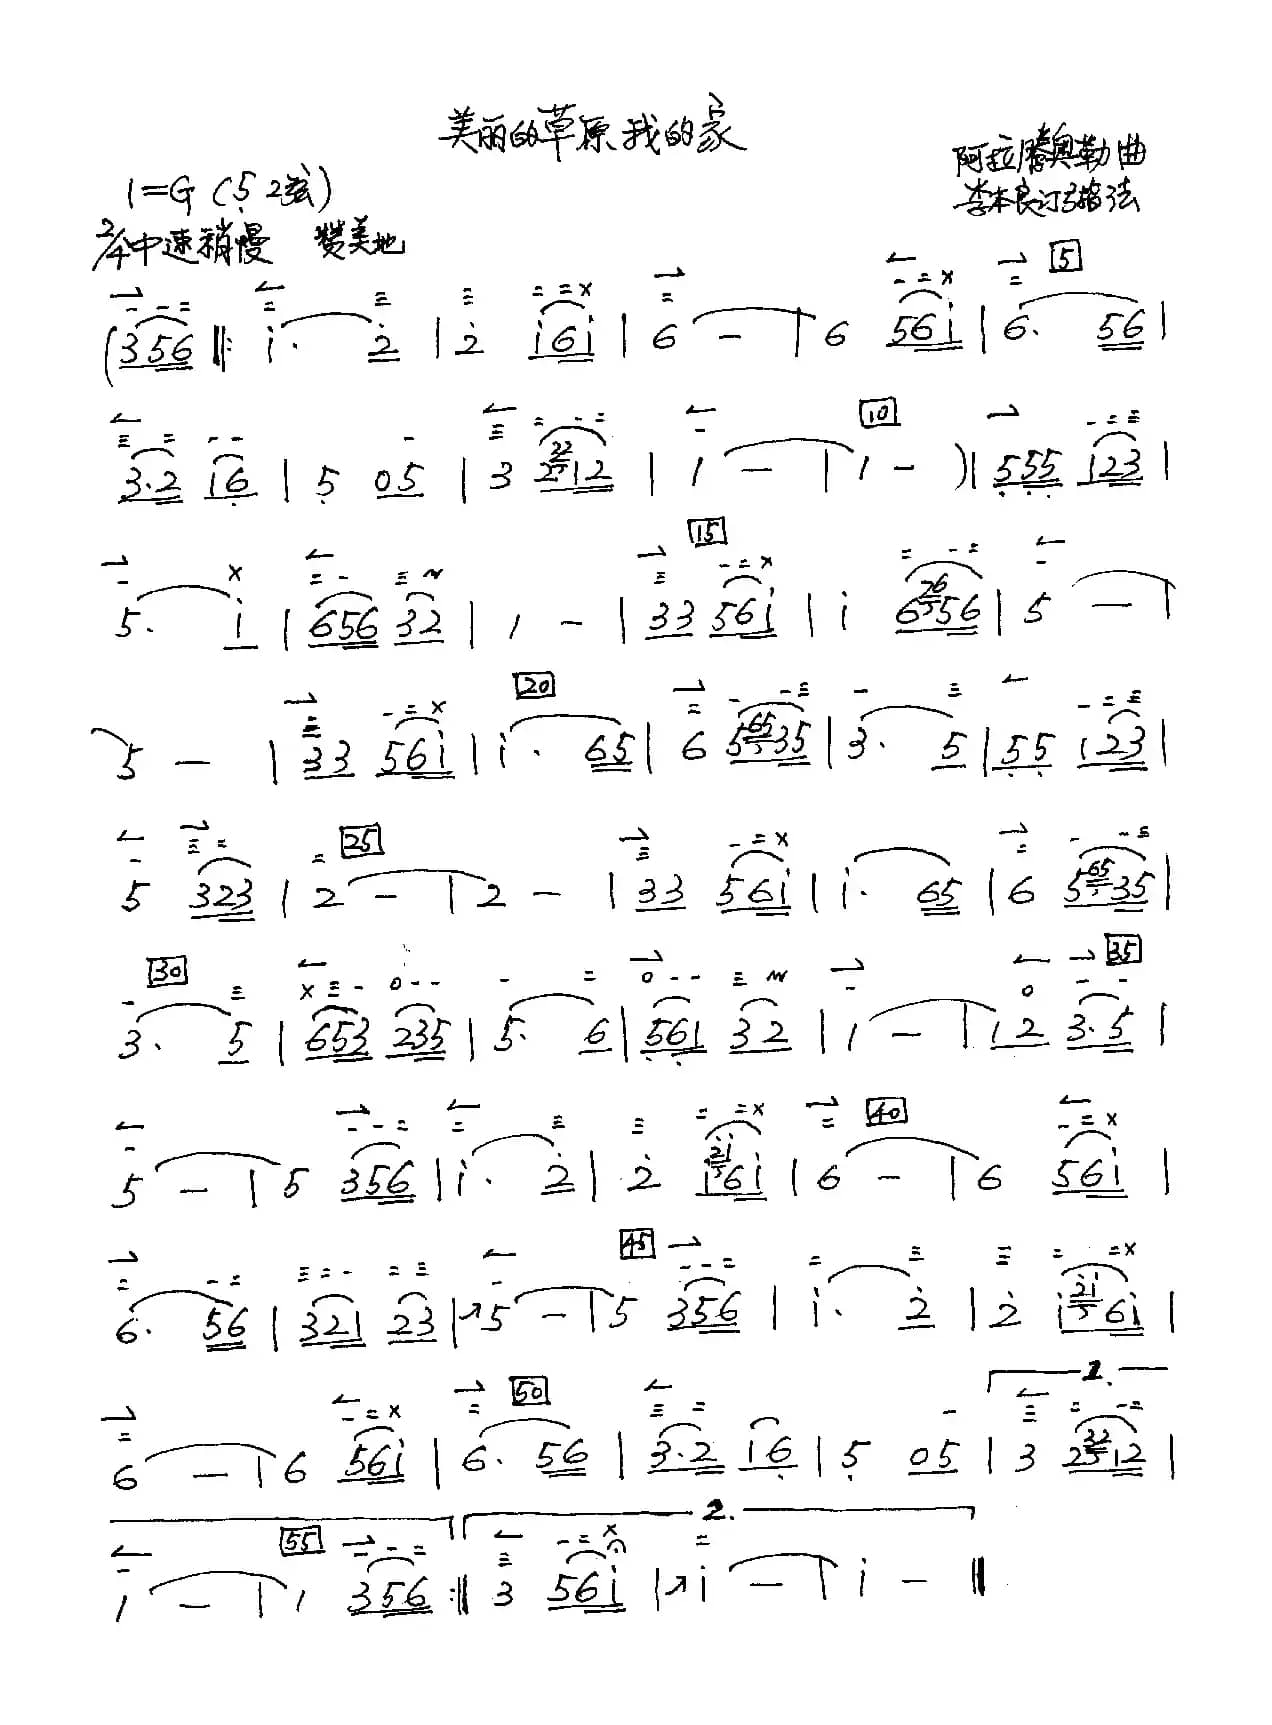 美丽的草原我的家
阿拉腾奥勒曲
1=G (5̣ 2弦)
李本良订弓指法
2/4 中速稍慢 赞美地
5
(356 ‖: i· 2̇ | 2̇ i6i | 6 - | 6 56i | 6· 56 |
10
3·2 16̣ | 5̣ 05 | 3 212 | 1 - | 1 - ) | 5̣5̣5̣ 123 |
15
5· i | 656 32 | 1 - | 33 56i | i 656 | 5 - |
20
5 - | 33 56i | i· 65 | 6 535 | 3· 5 | 5̣5̣ 123 |
25
5 323 | 2 - | 2 - | 33 56i | i· 65 | 6 535 |
30 35
3· 5 | 653 235 | 5· 6 | 5̣6̣1 32 | 1 - | 12 3·5 |
40
5 - | 5 356 | i· 2̇ | 2̇ i6i | 6 - | 6 56i |
45
6· 56 | 321 23 | 5 - | 5 356 | i· 2̇ | 2̇ i6i |
50 1.
6 - | 6 56i | 6· 56 | 3·2 16̣ | 5̣ 05 | 3 212 |
55 2.
1 - | 1 356 :‖ 3 56i | i - | i - ‖